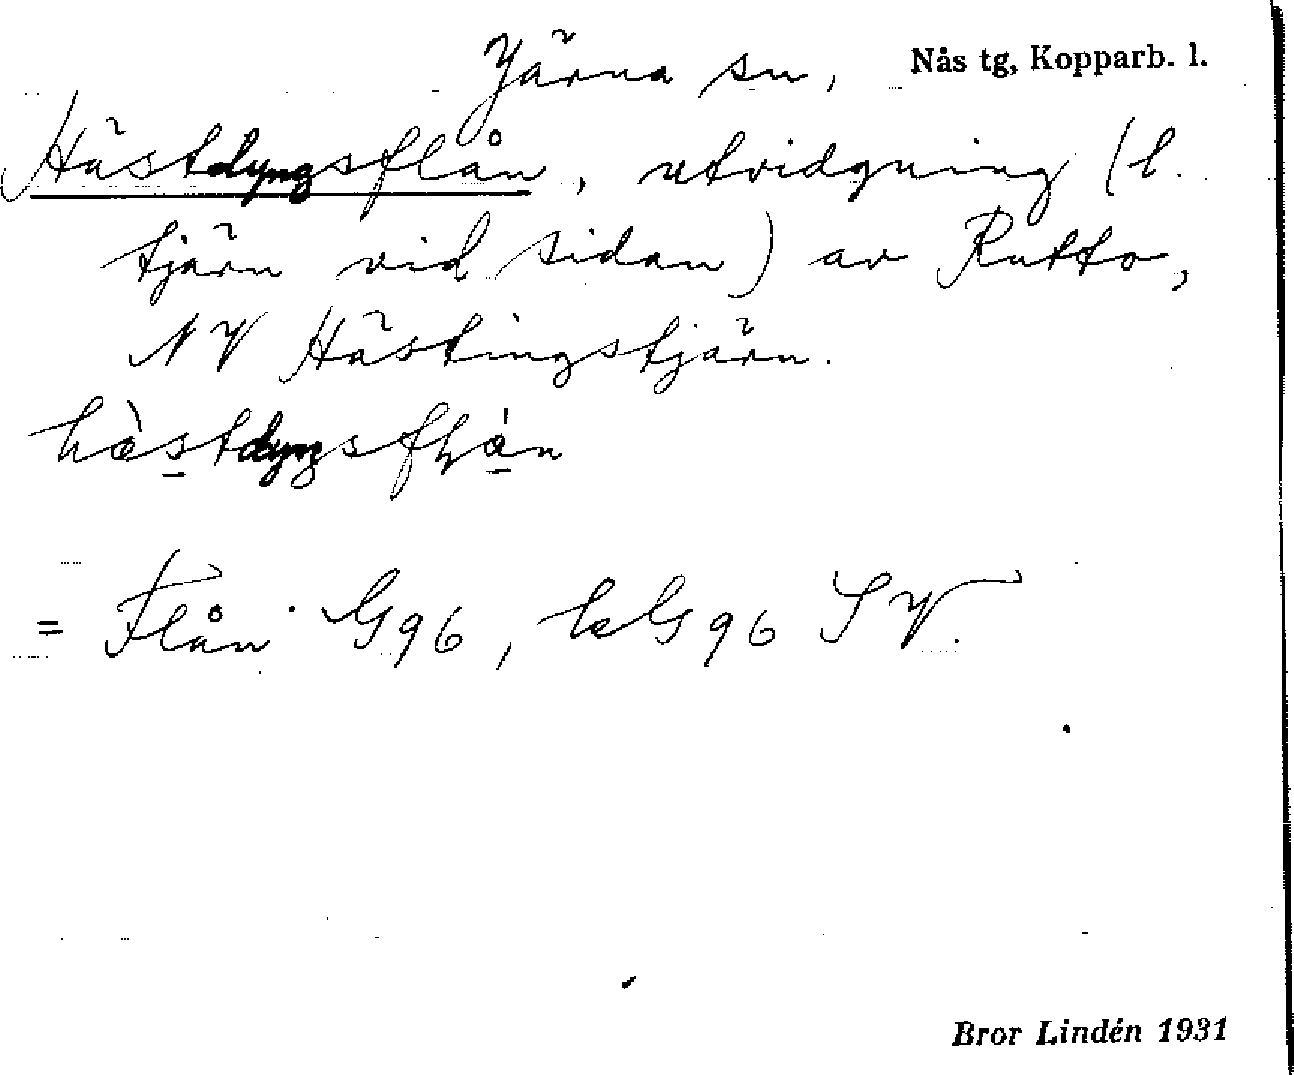 Järna sn, Nås tg, Kopparb. l.
Hästdyngsflån, utvidgning (l.
tjärn vid sidan) av Rutto,
NV Hästingstjärn.
hæ̀stdyŋsfɫán
= Flån G96, kG96 SV.
Bror Lindén 1931